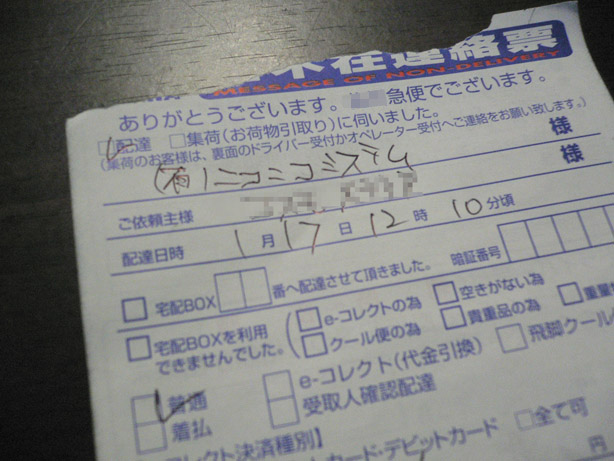 不在連絡票
MESSAGE OF NON-DELIVERY
ありがとうございます。 急便でございます。
配達 □集荷(お荷物引取り)に伺いました。
(集荷のお客様は、裏面のドライバー受付かオペレーター受付へご連絡をお願い致します。)
(有)ニコミコシステム 様
様
ご依頼主様
配達日時 1月17日12時10分頃
□宅配BOX 番へ配達させて頂きました。 暗証番号
□宅配BOXを利用できませんでした。
□e-コレクトの為 □空きがない為 □重量
□クール便の為 □貴重品の為
普通 □e-コレクト(代金引換) □飛脚クール
□着払 □受取人確認配達
レクト決済種別】
カード・デビットカード □全て可
円